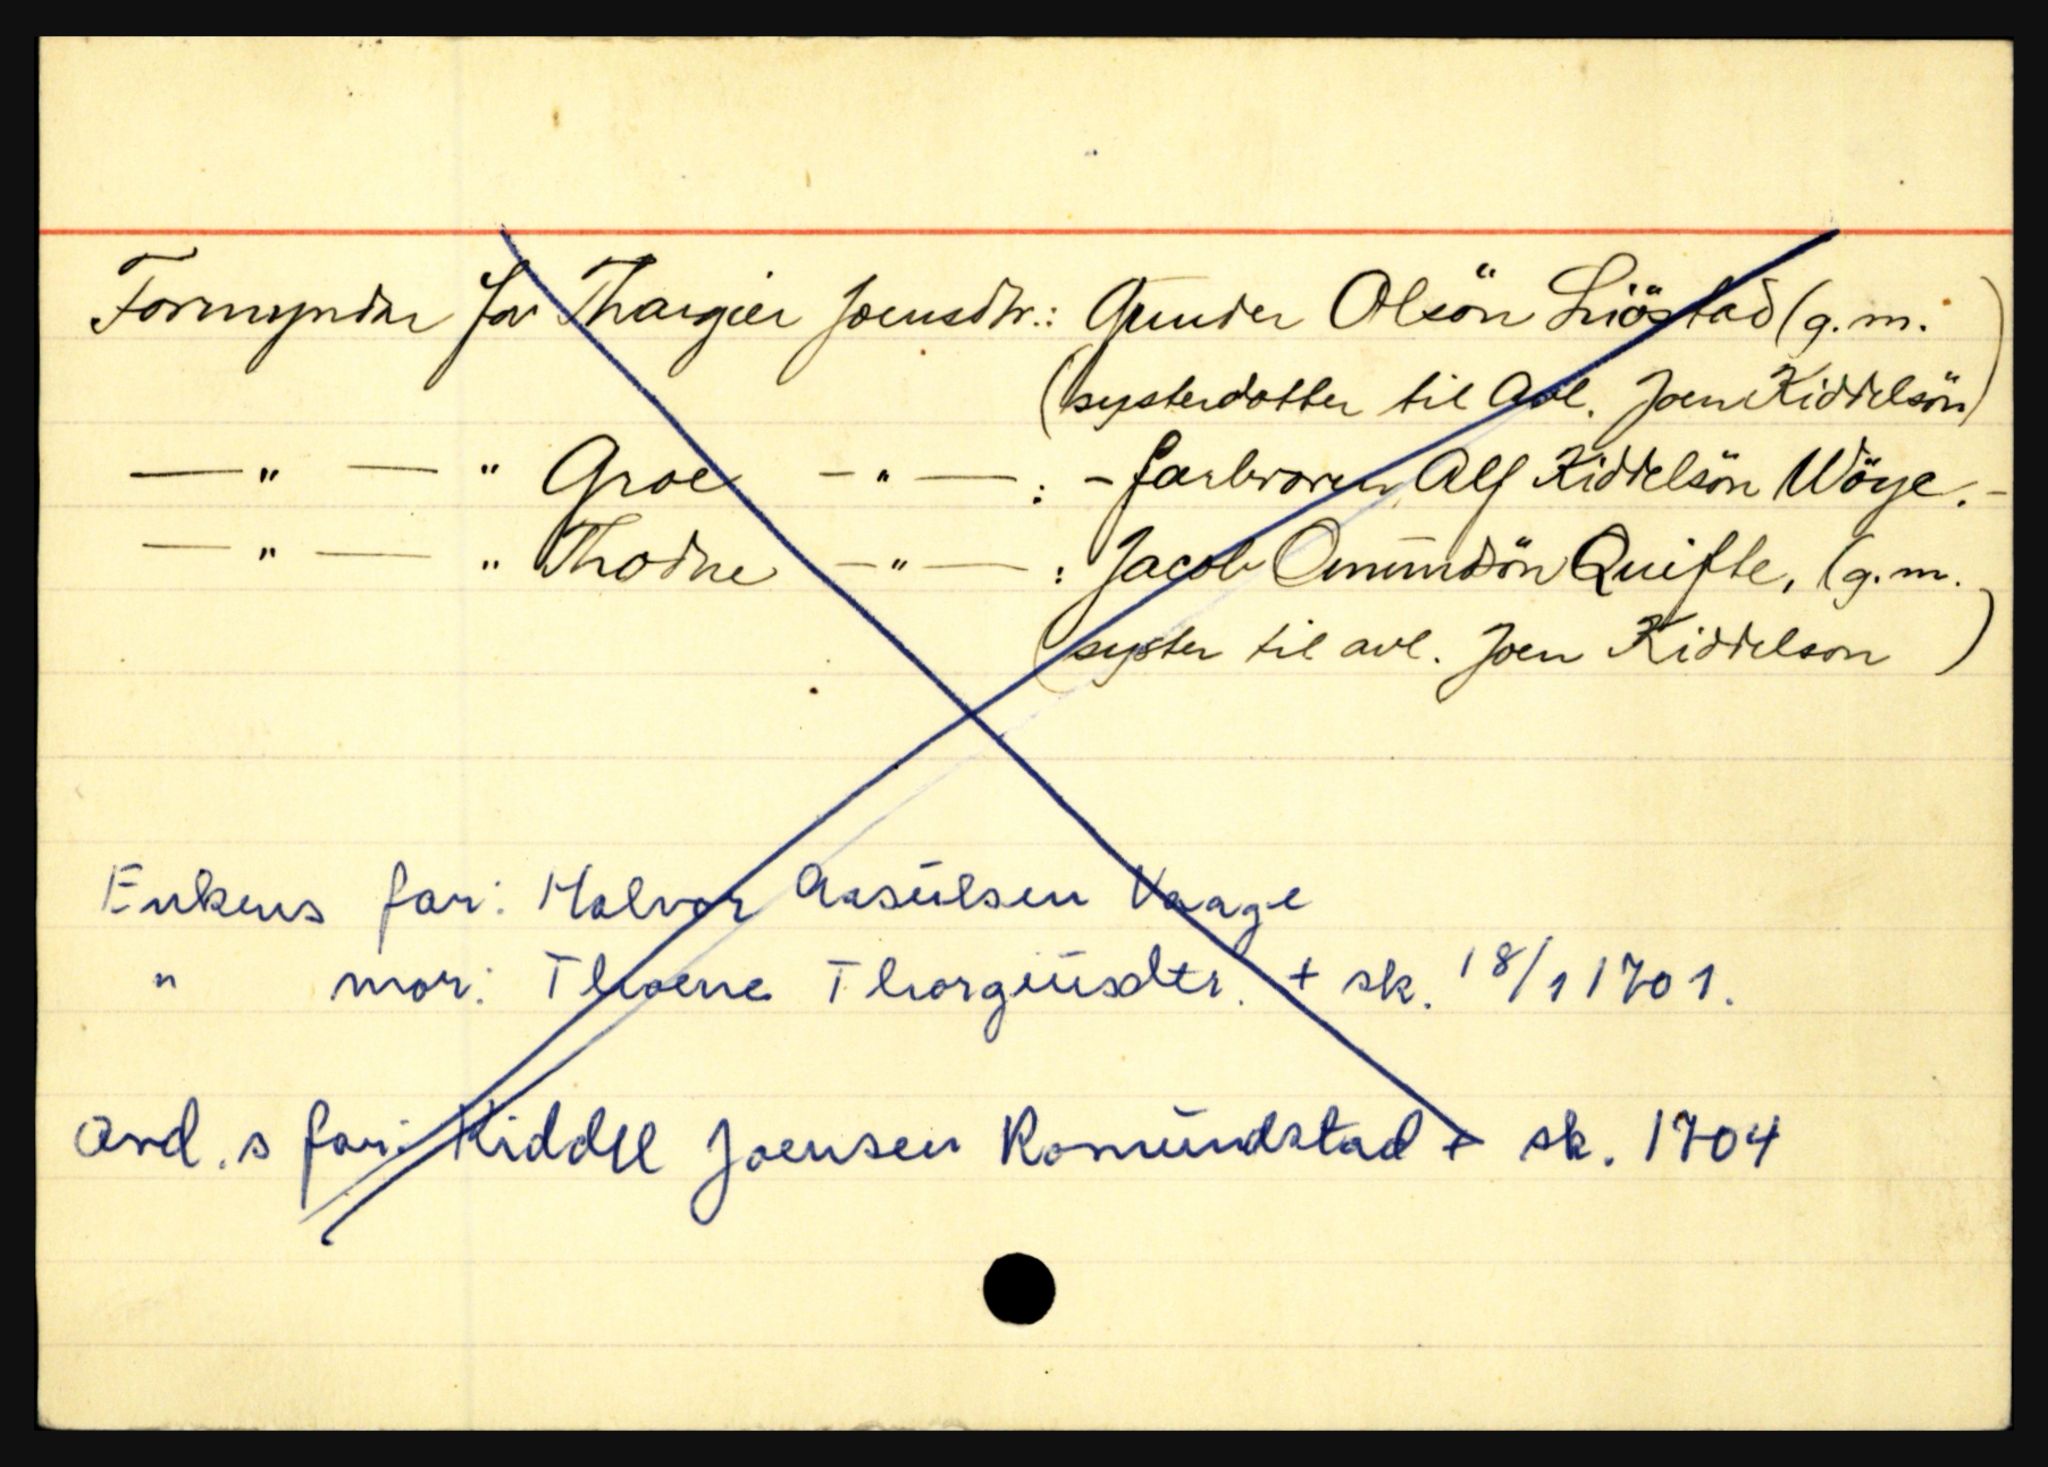 Formyndar for Thargier Joensdtr.: Gunder Olsön Liöstad (g.m.
(systerdotter til Avl. Joen Kiddelsön)
— " — " Groe — " — : - farbroren Alf Kiddelsön Wöye. -
— " — " Thodne — " — : Jacob Omundsön Quifte, (g.m.
(syster til avl. Joen Kiddelson )
Enkens far: Halvor Aasulsen Vaage
" mor: Thoene Thorgiusdtr. + sk. 18/1 1701.
Avd.s far: Kiddel Joensen Romundstad + sk. 1704